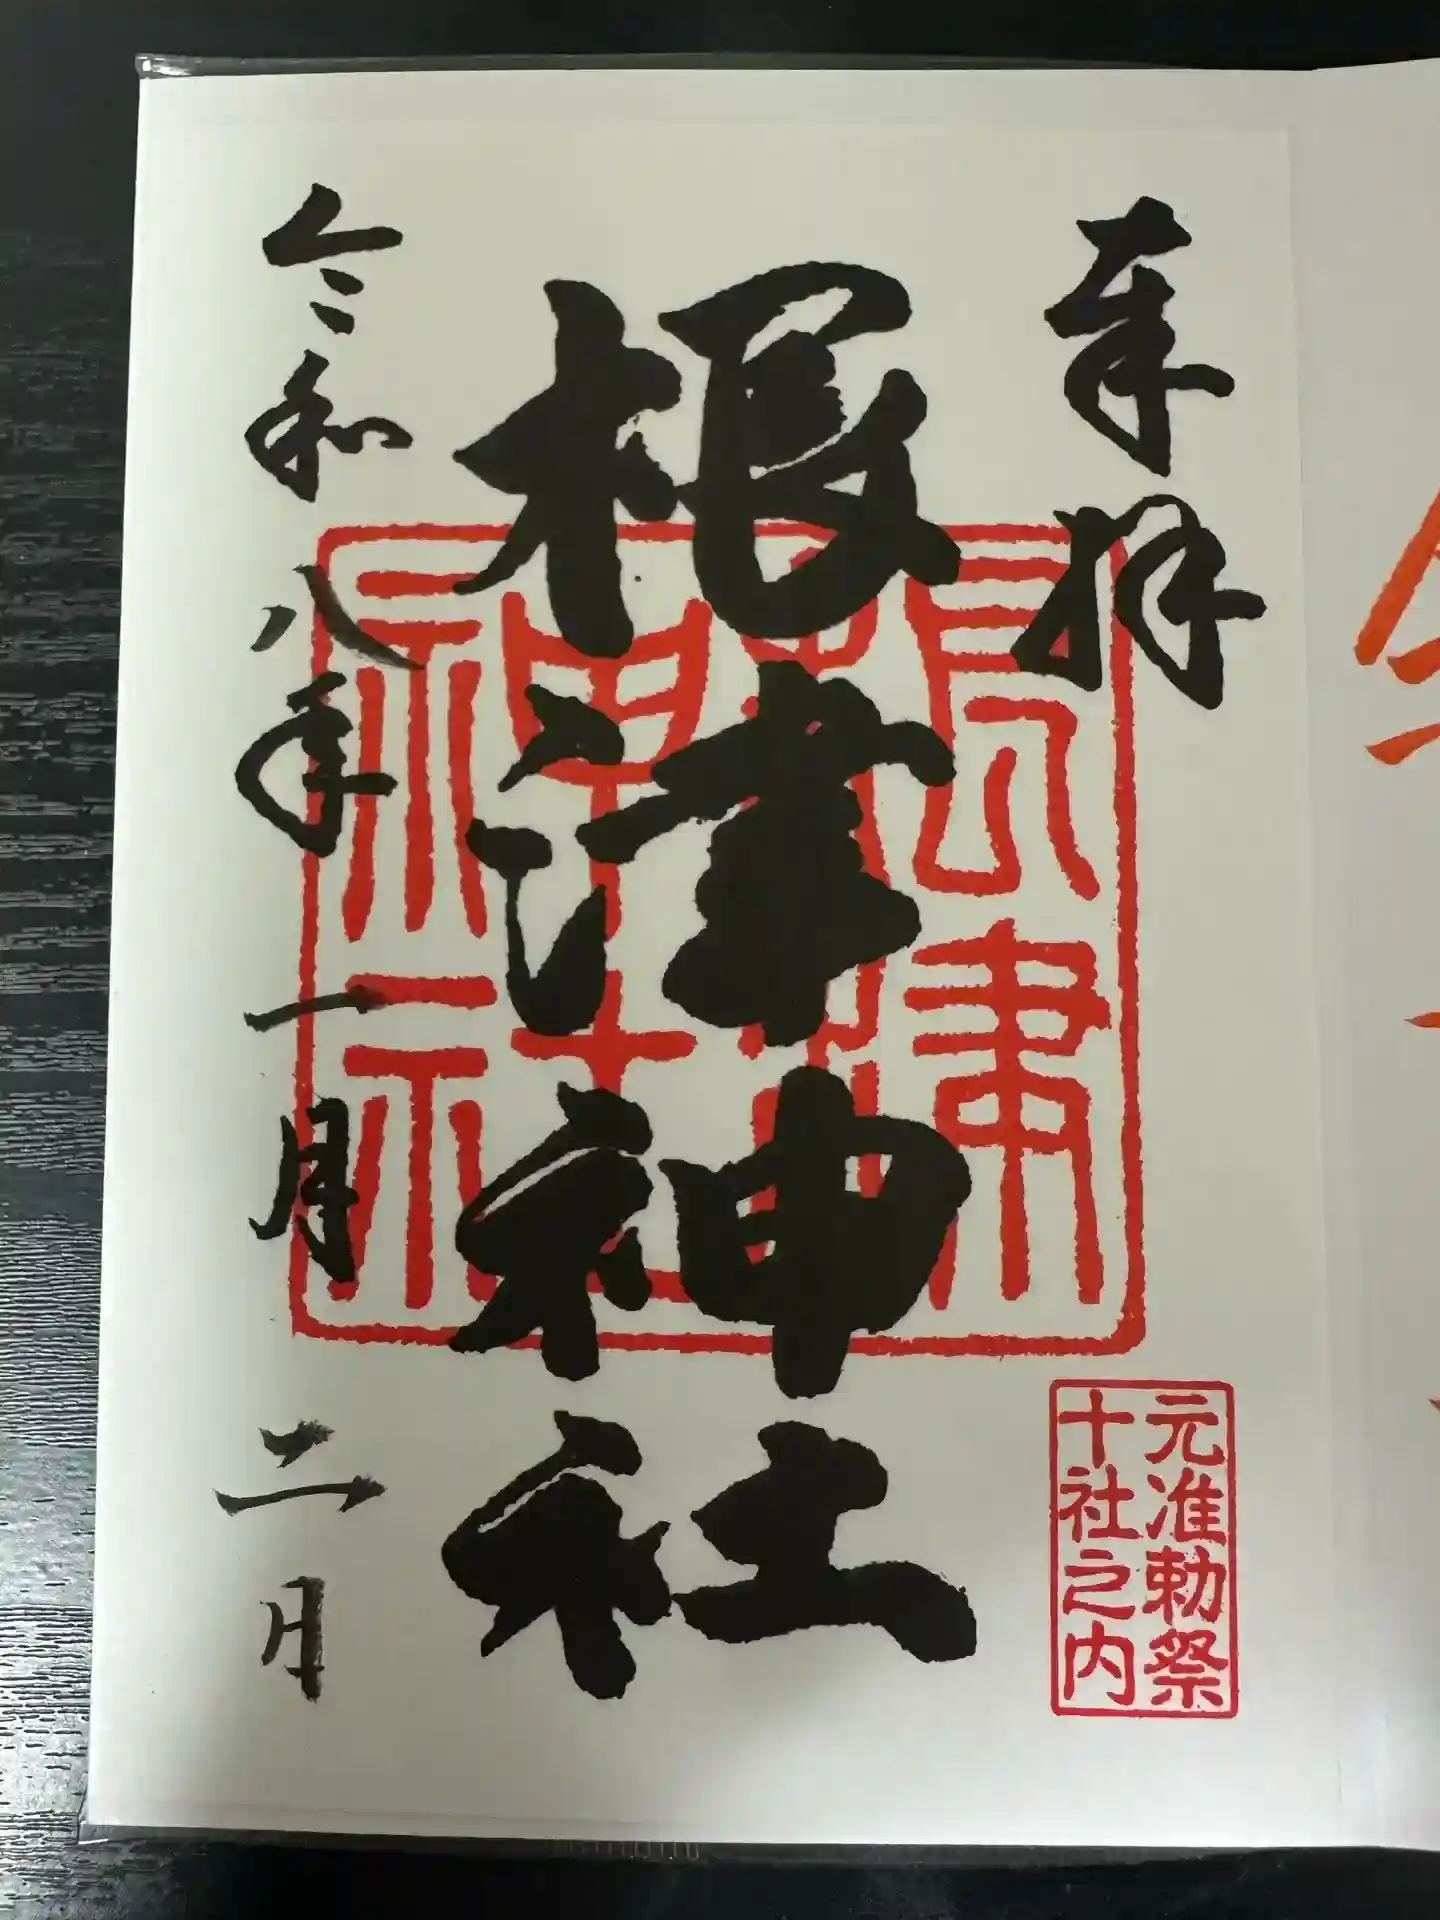 奉拝
根津神社
根津
神社
元准勅祭
十社之内
令和八年一月二日